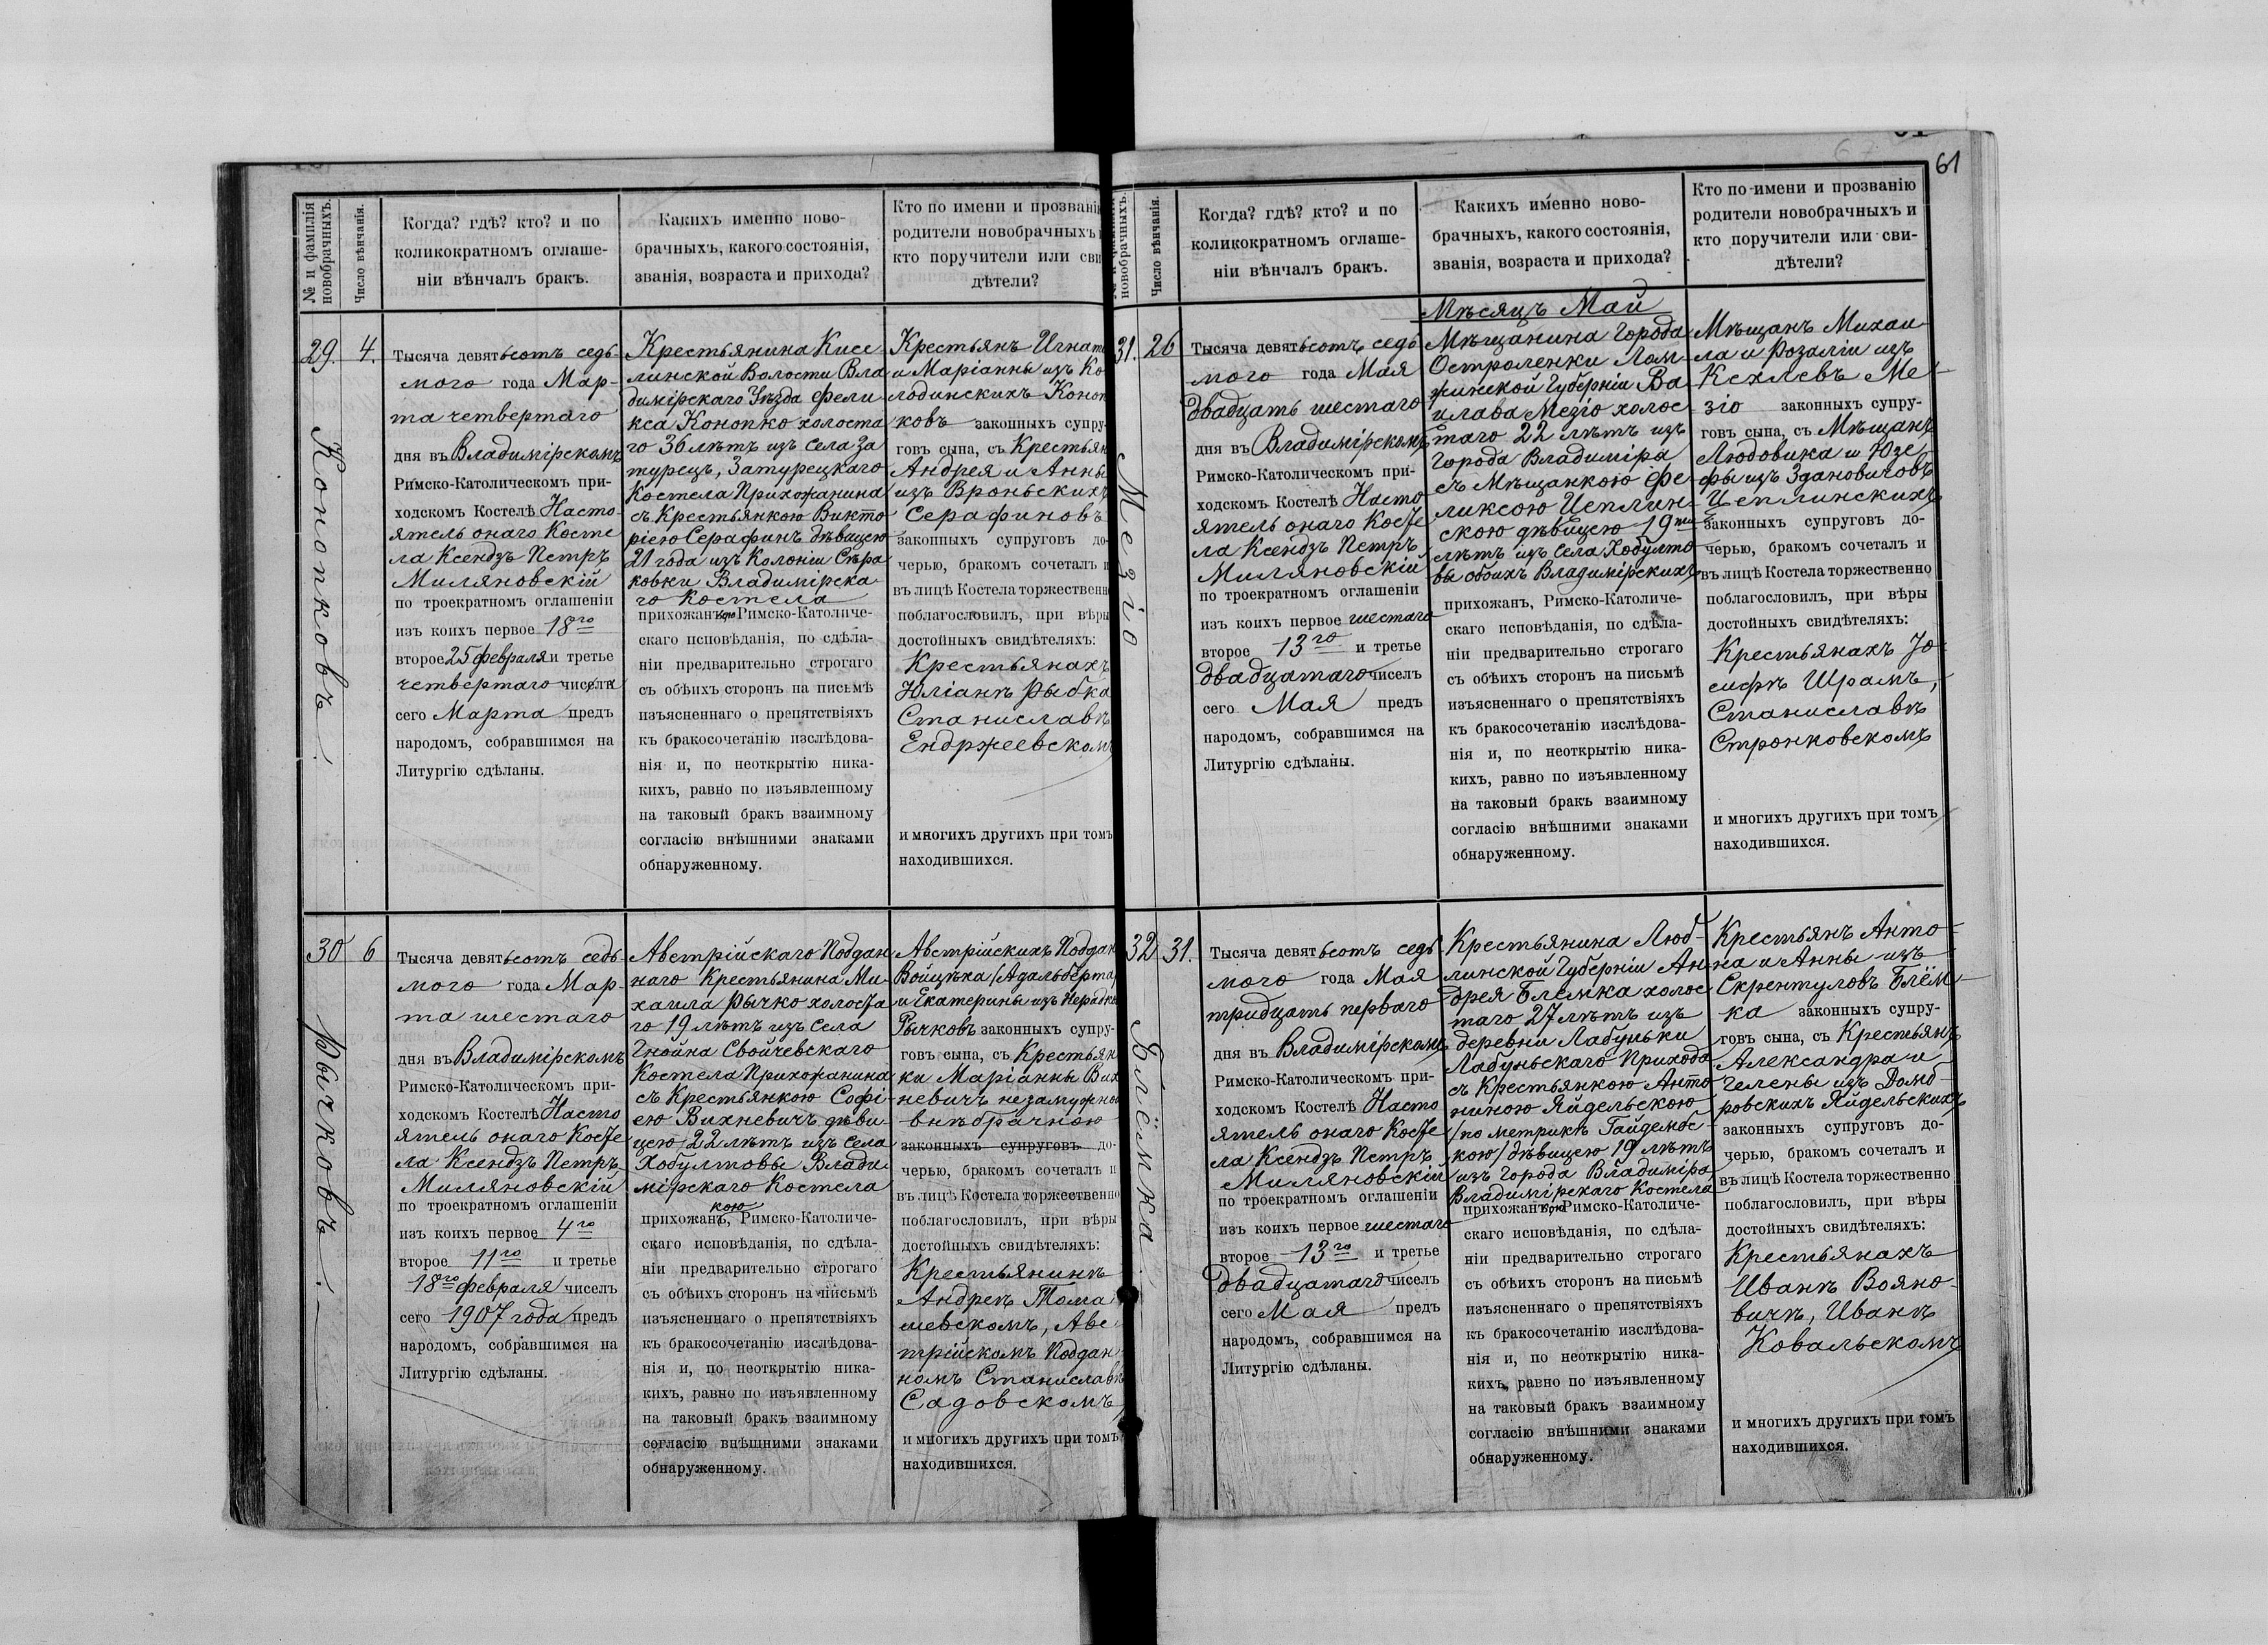 61
№ и фамилія
новобрачныхъ.
Число вѣнчанія.
Когда? гдѣ? кто? и по
коликократномъ оглаше-
ніи вѣнчалъ бракъ.
Какихъ именно ново-
брачныхъ, какого состоянія,
званія, возраста и прихода?
Кто по имени и прозванію
родители новобрачныхъ
кто поручители или сви
дѣтели?
29.
4.
Конопковъ.
Тысяча девятьсотъ седь
мого года Мар-
та четвертаго
дня въ Владимірскомъ
Римско-Католическомъ при-
ходскомъ Костелѣ Насто
ятель онаго Косте
ла Ксендзъ Петръ
Миляновскій
по троекратномъ оглашеніи
изъ коихъ первое 18го
второе 25 февраля и третье
четвертаго числа
сего Марта предъ
народомъ, собравшимся на
Литургію сдѣланы.
Крестьянина Кисе
линской Волости Вла
димірскаго Уѣзда Фели
кса Конопко холоста
го 36 лѣтъ изъ села За
турецъ, Затурецкаго
Костела Прихожанина
съ Крестьянкою Викто
ріею Серафинъ дѣвицею
21 года изъ Колоніи Сѣра
ковки Владимірска
го Костела
прихожанкою Римско-Католиче-
скаго исповѣданія, по сдѣла-
ніи предварительно строгаго
съ обѣихъ сторонъ на письмѣ
изъясненнаго о препятствіяхъ
къ бракосочетанію изслѣдова-
нія и, по неоткрытію ника-
кихъ, равно по изъявленному
на таковый бракъ взаимному
согласію внѣшними знаками
обнаруженному.
Крестьянъ Игнат
и Маріанны изъ Ко
лодинскихъ Коноп
ковъ законныхъ супру-
говъ сына, съ Крестьян
Андрея и Анны
изъ Вроньскихъ
Серафиновъ
законныхъ супруговъ до-
черью, бракомъ сочеталъ и
въ лицѣ Костела торжественно
поблагословилъ, при вѣры
достойныхъ свидѣтеляхъ:
Крестьянахъ
Юліанѣ Рыбка
Станиславѣ
Ендржеевскомъ
и многихъ другихъ при томъ
находившихся.
30
6
Рычковъ.
Тысяча девятьсотъ седь
мого года Мар-
та шестаго
дня въ Владимірскомъ
Римско-Католическомъ при-
ходскомъ Костелѣ Насто
ятель онаго Косте
ла Ксендзъ Петръ
Миляновскій
по троекратномъ оглашеніи
изъ коихъ первое 4го
второе 11го и третье
18го февраля чиселъ
сего 1907 года предъ
народомъ, собравшимся на
Литургію сдѣланы.
Австрійскаго Поддан
наго Крестьянина Ми-
хаила Рычко холоста
го 19 лѣтъ изъ села
Гнойна Свойчевскаго
Костела Прихожанина
съ Крестьянкою Софі-
ею Вихневичъ дѣви-
цею 22 лѣтъ изъ села
Хобултовы Влади
мірскаго Костела
прихожанкою, Римско-Католиче-
скаго исповѣданія, по сдѣла-
ніи предварительно строгаго
съ обѣихъ сторонъ на письмѣ
изъясненнаго о препятствіяхъ
къ бракосочетанію изслѣдова-
нія и, по неоткрытію ника-
кихъ, равно по изъявленному
на таковый бракъ взаимному
согласію внѣшними знаками
обнаруженному.
Австрійскихъ Поддан
Войцѣха /Адальберта/
и Екатерины изъ
Рычковъ законныхъ супру-
говъ сына, съ Крестьян
ки Маріанны Вих
невичъ незамужно
внѣбрачною
законныхъ супруговъ до-
черью, бракомъ сочеталъ и
въ лицѣ Костела торжественно
поблагословилъ, при вѣры
достойныхъ свидѣтеляхъ:
Крестьянинѣ
Андреѣ Тома
шевскомъ, Авс
трійскомъ Поддан
номъ Станиславѣ
Садовскомъ
и многихъ другихъ при томъ
находившихся.
новобрачныхъ.
Число вѣнчанія.
Когда? гдѣ? кто? и по
коликократномъ оглаше-
ніи вѣнчалъ бракъ.
Какихъ именно ново-
брачныхъ, какого состоянія,
званія, возраста и прихода?
Кто по имени и прозванію
родители новобрачныхъ и
кто поручители или сви-
дѣтели?
Мѣсяцъ Май
31.
26
Мезіо
Тысяча девятьсотъ седь
мого года Мая
двадцать шестаго
дня въ Владимірскомъ
Римско-Католическомъ при-
ходскомъ Костелѣ Насто
ятель онаго Косте
ла Ксендзъ Петръ
Миляновскій
по троекратномъ оглашеніи
изъ коихъ первое шестаго
второе 13го и третье
двадцатаго чиселъ
сего Мая предъ
народомъ, собравшимся на
Литургію сдѣланы.
Мѣщанина Города
Остроленки Лом-
жинской Губерніи Ва
цлава Мезіо холос
таго 22 лѣтъ изъ
Города Владиміра
съ Мѣщанкою Фе
ликсою Цеплин-
скою дѣвицею 19ти
лѣтъ изъ села Хобулто
вы обоихъ Владимірскихъ
прихожанъ, Римско-Католиче-
скаго исповѣданія, по сдѣла-
ніи предварительно строгаго
съ обѣихъ сторонъ на письмѣ
изъясненнаго о препятствіяхъ
къ бракосочетанію изслѣдова-
нія и, по неоткрытію ника-
кихъ, равно по изъявленному
на таковый бракъ взаимному
согласію внѣшними знаками
обнаруженному.
Мѣщанъ Михаи
ла и Розаліи изъ
Кехлевъ Ме-
зіо законныхъ супру-
говъ сына, съ Мѣщанъ
Людовика и Юзе
фы изъ Здановичовъ
Цеплинскихъ
законныхъ супруговъ до-
черью, бракомъ сочеталъ и
въ лицѣ Костела торжественно
поблагословилъ, при вѣры
достойныхъ свидѣтеляхъ:
Крестьянахъ Іо-
сифѣ Шрамъ,
Станиславѣ
Стронковскомъ
и многихъ другихъ при томъ
находившихся.
32
31.
Блёмка
Тысяча девятьсотъ седь
мого года Мая
тридцать перваго
дня въ Владимірскомъ
Римско-Католическомъ при-
ходскомъ Костелѣ Насто
ятель онаго Косте
ла Ксендзъ Петръ
Миляновскій
по троекратномъ оглашеніи
изъ коихъ первое шестаго
второе 13го и третье
двадцатаго чиселъ
сего Мая предъ
народомъ, собравшимся на
Литургію сдѣланы.
Крестьянина Люб-
линской Губерніи Ан-
дрея Блемка холос
таго 27 лѣтъ изъ
деревни Лабуньки
Лабуньскаго Прихода
съ Крестьянкою Анто
ниною Яйдельскою
/по метрикѣ Гайдемс-
кою/ дѣвицею 19 лѣтъ
изъ Города Владиміра
Владимірскаго Костела
прихожанкою Римско-Католиче-
скаго исповѣданія, по сдѣла-
ніи предварительно строгаго
съ обѣихъ сторонъ на письмѣ
изъясненнаго о препятствіяхъ
къ бракосочетанію изслѣдова-
нія и, по неоткрытію ника-
кихъ, равно по изъявленному
на таковый бракъ взаимному
согласію внѣшними знаками
обнаруженному.
Крестьянъ Анто-
на и Анны изъ
Скрентуловъ Блём-
ка законныхъ супру-
говъ сына, съ Крестьянъ
Александра и
Гелены изъ Домб-
ровскихъ Яйдельскихъ
законныхъ супруговъ до-
черью, бракомъ сочеталъ и
въ лицѣ Костела торжественно
поблагословилъ, при вѣры
достойныхъ свидѣтеляхъ:
Крестьянахъ
Иванѣ Вояно-
вичѣ, Иванѣ
Ковальскомъ
и многихъ другихъ при томъ
находившихся.